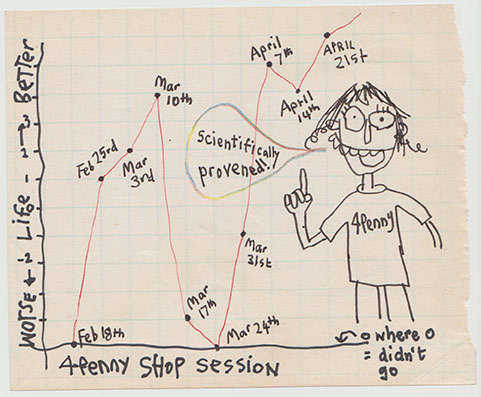 Better
Life
WORSE
Feb 18th
Feb 23rd
Mar
3rd
Mar
10th
Mar
17th
Mar 24th
Mar
31st
April
7th
April
14th
APRIL
21st
Scientifically
provened!
4Penny
4Penny SHOP SESSION
0 where 0
= didn't
go